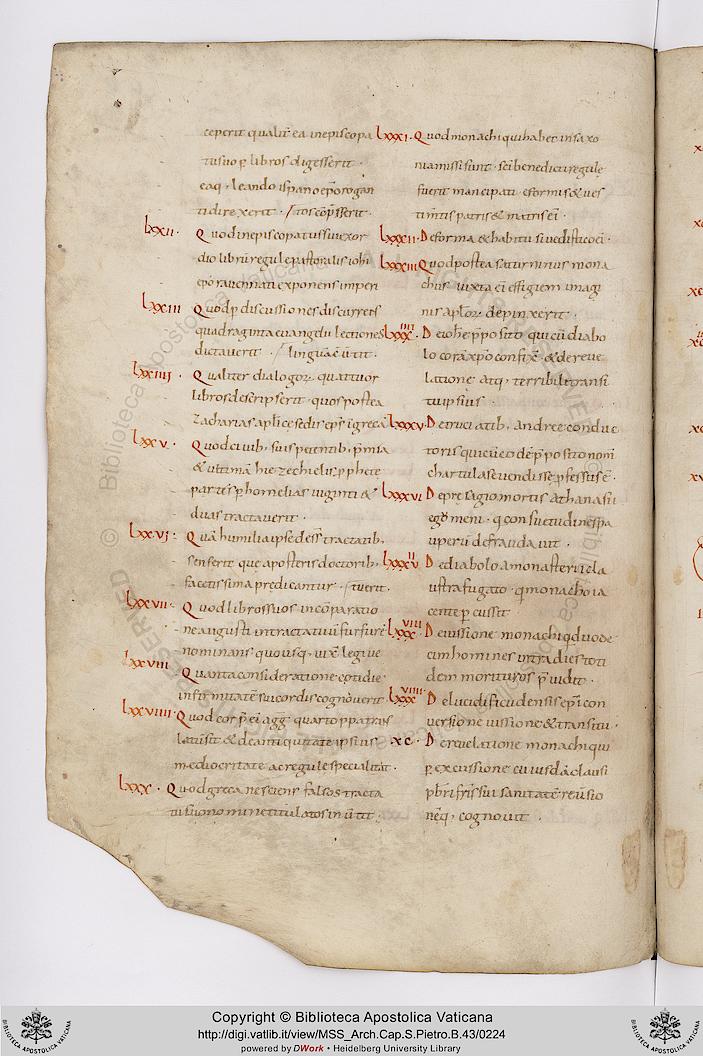 ceperit qualit ea in episcopa
tu suo p libros digesserit ·
eaq; leandro ispano epo rogan
ti direxerit ·
lxxii · Quod in episcopatus sui exor
dio librū regule pastoralis iohi
epo rauennati exponens imperi
lxxiii Quod p discussiones discurrens
quadraginta euangelii lectiones
dictauerit ·
lxxiiii · Qualiter dialogor quattuor
libros descripserit · quos postea
Zacharias aplice sedis eps greca
lxxv · Quod
& ultimā hiezechielis pphete
partē p homelias uiginti &
duas tractauerit ·
lxxvi · Quā humilia ipse de se tractatib;
senserit que a posteris doctorib;
facetissima predicantur ·
lxxvii · Quod libros suos in cōparatio
ne augusti in tractatiuū furfurē
nominans
lxxviii Quanta consideratione cotidie
infirmitatē sui cordis cognouerit
lxxviiii Quod cor p ei agg quarto p patruus
latū sit & de antiquitate ipsius
mediocritate ac regule specialitat ·
lxxx · Quod greca nesciens falsos tracta
tus suo nomine titulatos
lxxxi · Quod monachi qui habet in saxo
niam missi sunt · sci benedicti regule
fuerit mancipati · & formis & ues
timtis patris & matris ei ·
lxxxii · De forma & habitu
lxxxiii Quod postea saturninus mona
chus iuxta ei effigiem imagi
nis aplor depinxerit ·
lxxxiiii De iohe pposito qui cū diabo
lo corā xpo confixē & de reue
latione atq; terribili transi
tu ipsius ·
lxxxv · De cruciatib; andree conduc
toris
chartulas euendisse pfessus ē ·
lxxxvi De presagio mortis athanasii
egomeni · q consuetudines pa
uperū defraudauit ·
lxxxvii De diabolo a monasterii cla
ustra fugato · q monacho ia
cente percussit
lxxxviii De uissione monachi qd duode
cim homines intra dies toti
dem morituros p uidit ·
lxxxviiii De lucidi ficudensis epi con
uersione uissione & transitu ·
xc · De reuelatione monachi qui
p excussione cuiusdā clausi
pbri fris sui sanitatē
neq; cognouit ·
Copyright © Biblioteca Apostolica Vaticana
http://digi.vatlib.it/view/MSS_Arch.Cap.S.Pietro.B.43/0224
powered by DWork • Heidelberg University Library